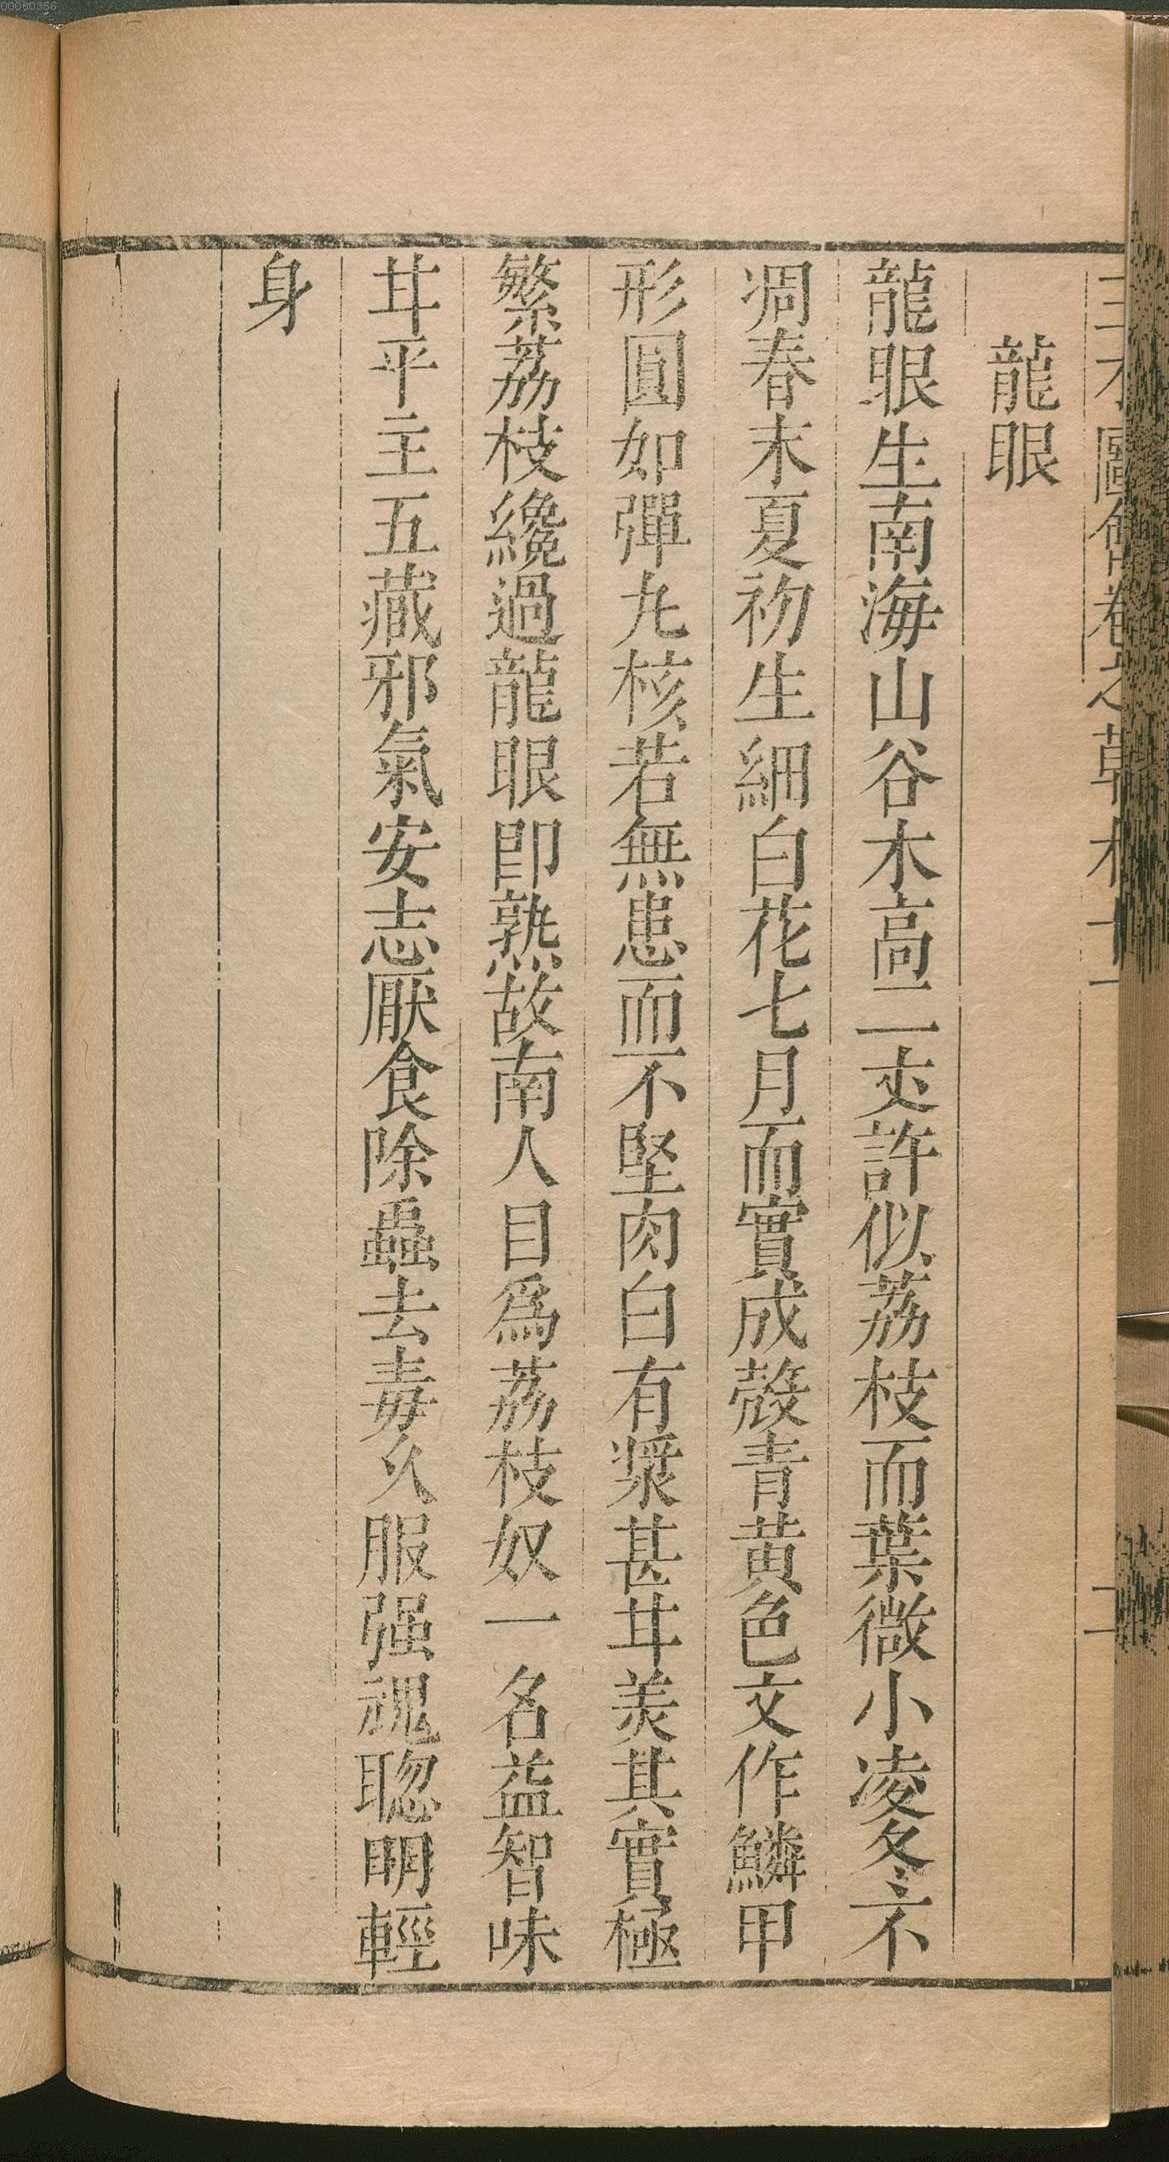 00060356
龍眼
龍眼生南海山谷木高二𠀋許似荔枝而葉微小凌冬不
凋春末夏初生細白花七月而實成殼青黃色文作鱗甲
形圓如彈丸核若無患而不堅肉白有漿甚甘美其實極
繁荔枝纔過龍眼即熟故南人目爲荔枝奴一名益智味
甘平主五藏邪氣安志厭食除蟲去毒久服强魂聰明輕
身